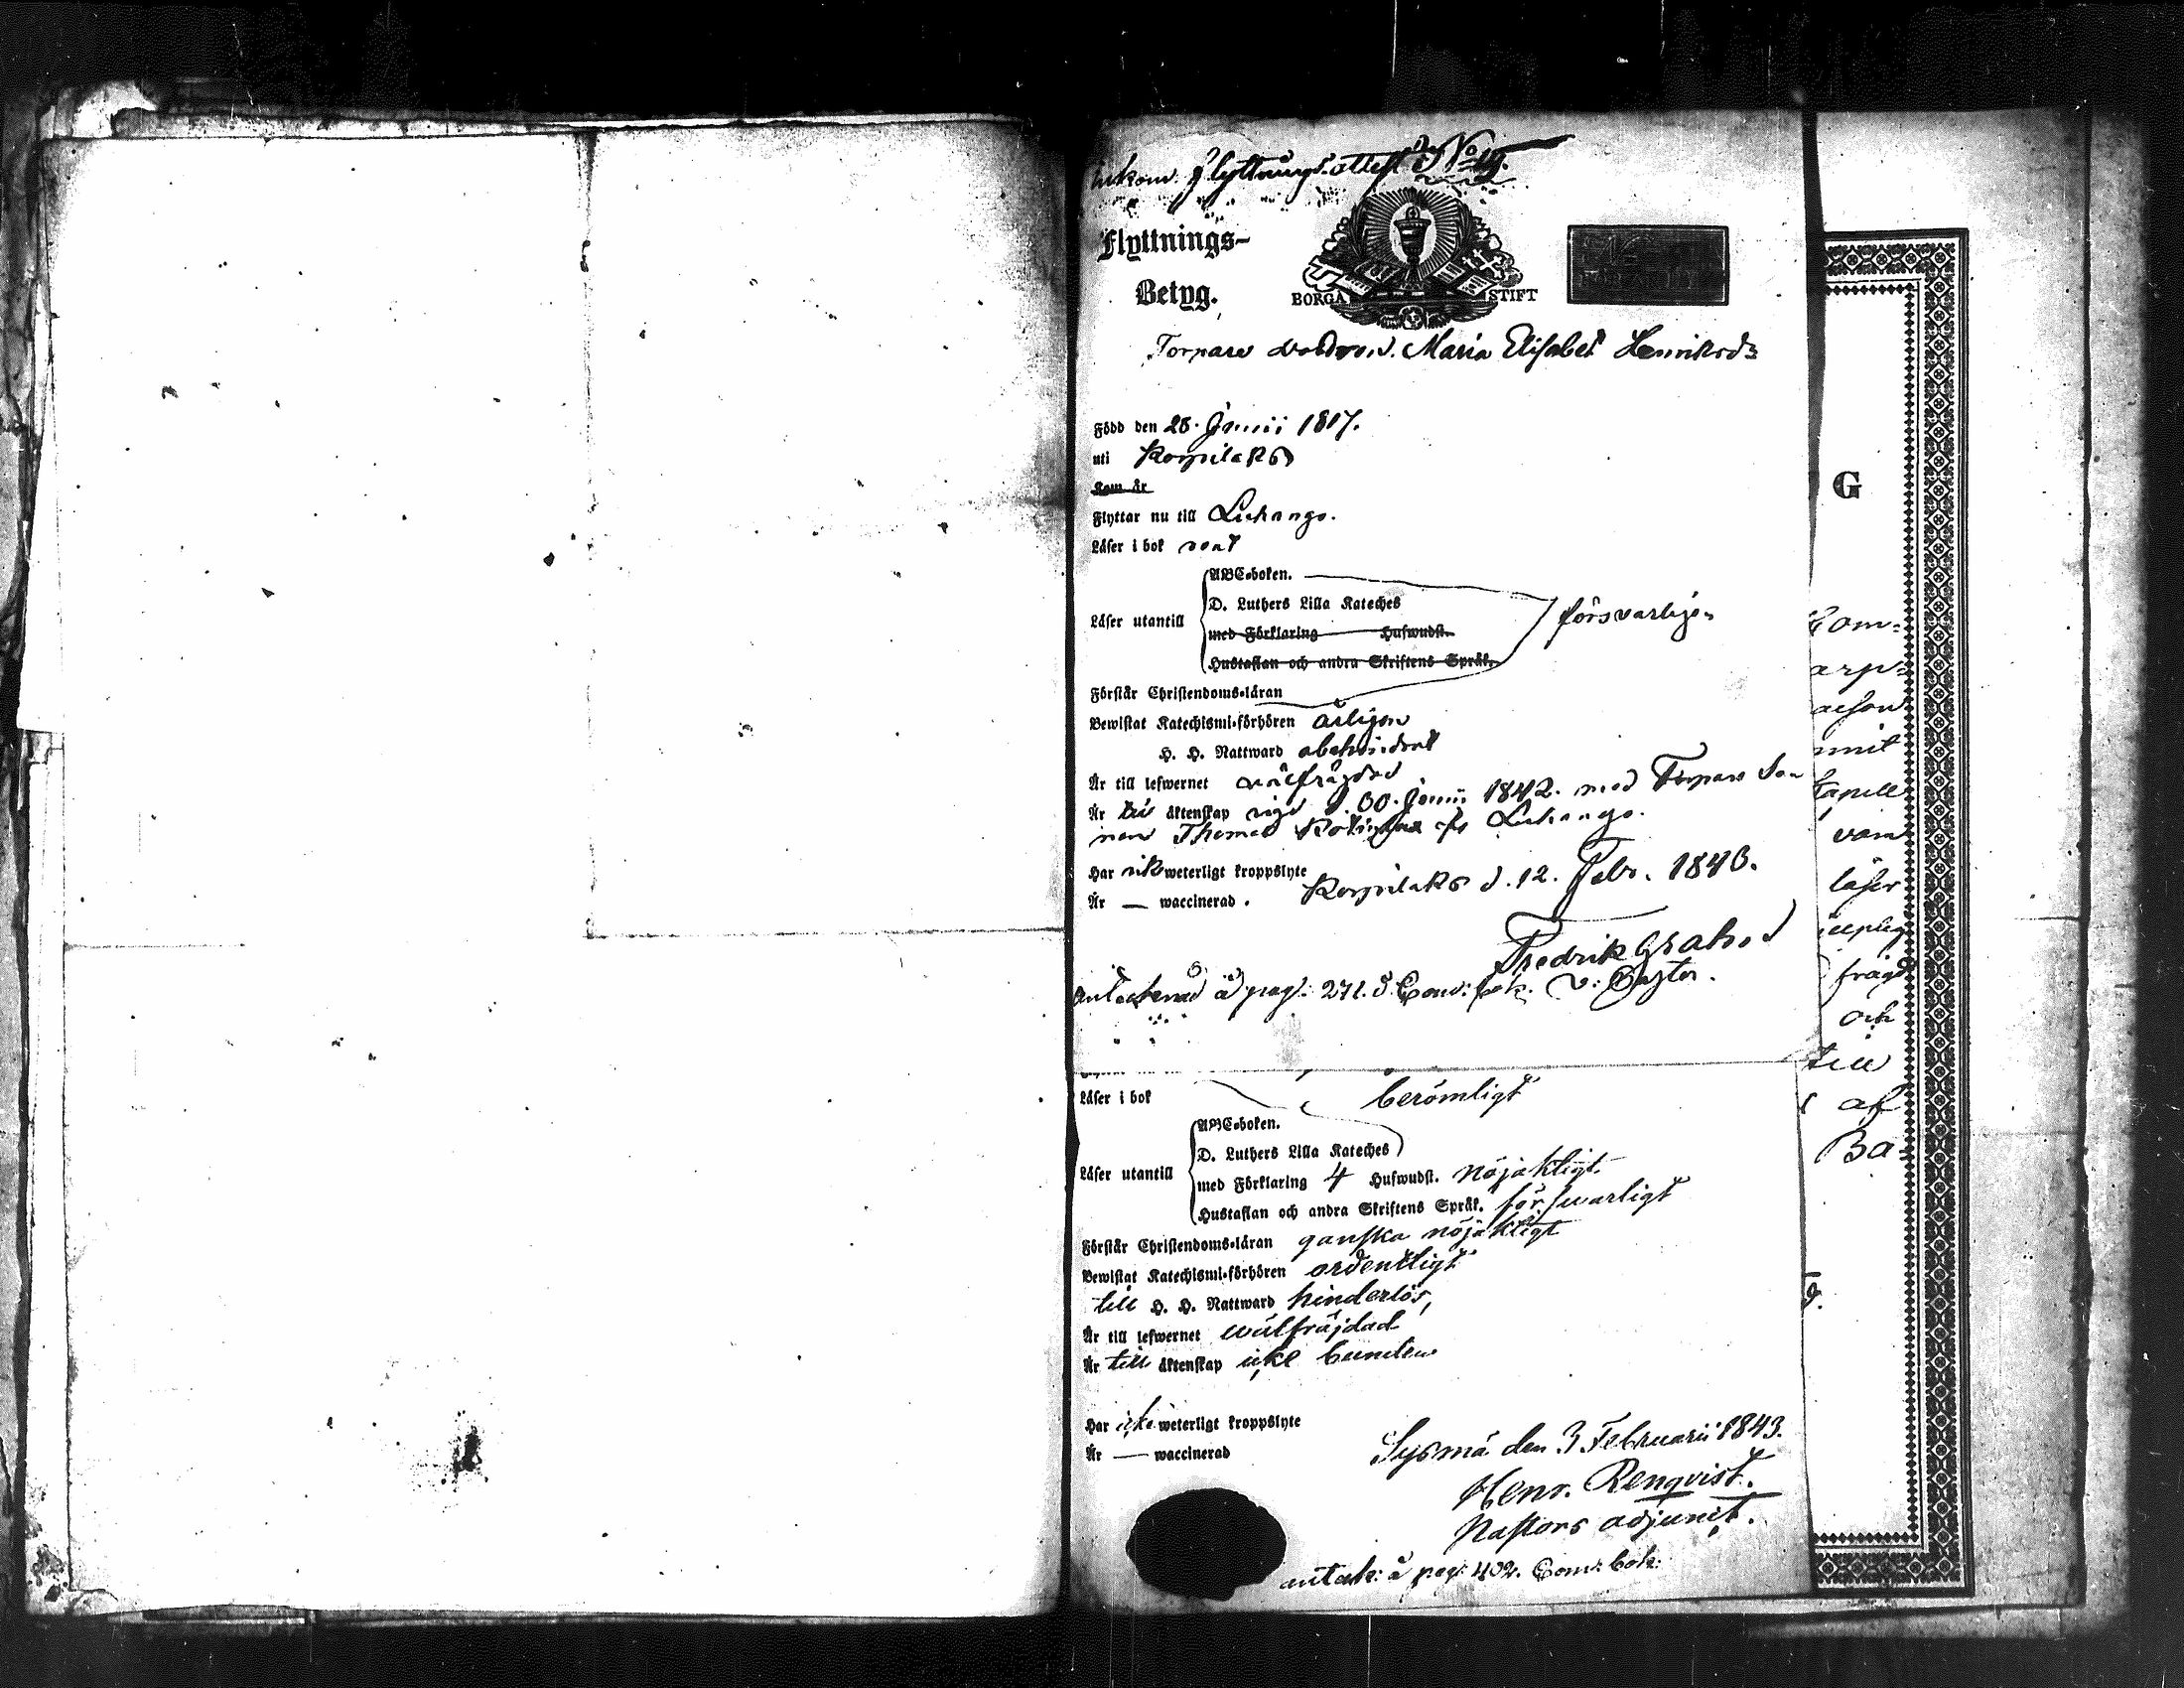 inkom: Flyttnings-attest No 19.
Flyttnings-
Betyg.
BORGÅ STIFT
Torpare Maria Elisabet Henriksdr
Född den 28. Junii 1817.
uti Korpilaks
Kom år
Flyttar nu till Luhango.
Läser i bok
ABC-boken.
D. Luthers Lilla Kateches
Läser utantill försvarligen
med Förklaring Hufwudst.
Hustaflan och andra Skriftens Språk.
Förstår Christendoms-läran
Bewistat Katechismi-förhören årligen
H. H. Nattward obehindrat
Är till lefwernet välfrägdad
Är till äktenskap vigd d. 30. Junii 1842. med Torpare So-
nen Thomas fr Luhango.
Har icke weterligt kroppslyte
Är — waccinerad.
Korpilaks d. 12. Febr. 1843.
Fredrik Grahnd
v: Pastor.
antecknad å pag: 271. i Com: bok.
Läser i bok berömligt
ABC-boken.
D. Luthers Lilla Kateches
Läser utantill
med Förklaring 4 Hufwudst. nöjaktligt.
Hustaflan och andra Skriftens Språk. förswarligt
Förstår Christendoms-läran ganska nöjaktligt
Bewistat Katechismi-förhören ordentligt
till H. H. Nattward hinderlös,
Är till lefwernet wälfräjdad
Är till äktenskap icke bunden
Har icke weterligt kroppslyte
Är — waccinerad
Sysmä den 3 Februarii 1843.
Henr. Renqvist.
Pastors adjunct.
anteck: å pag: 402. Com: bok:
G
Kom=
arp=
aeson
mit
Capell
vara
läser
frägd
och
till
af
Ba=